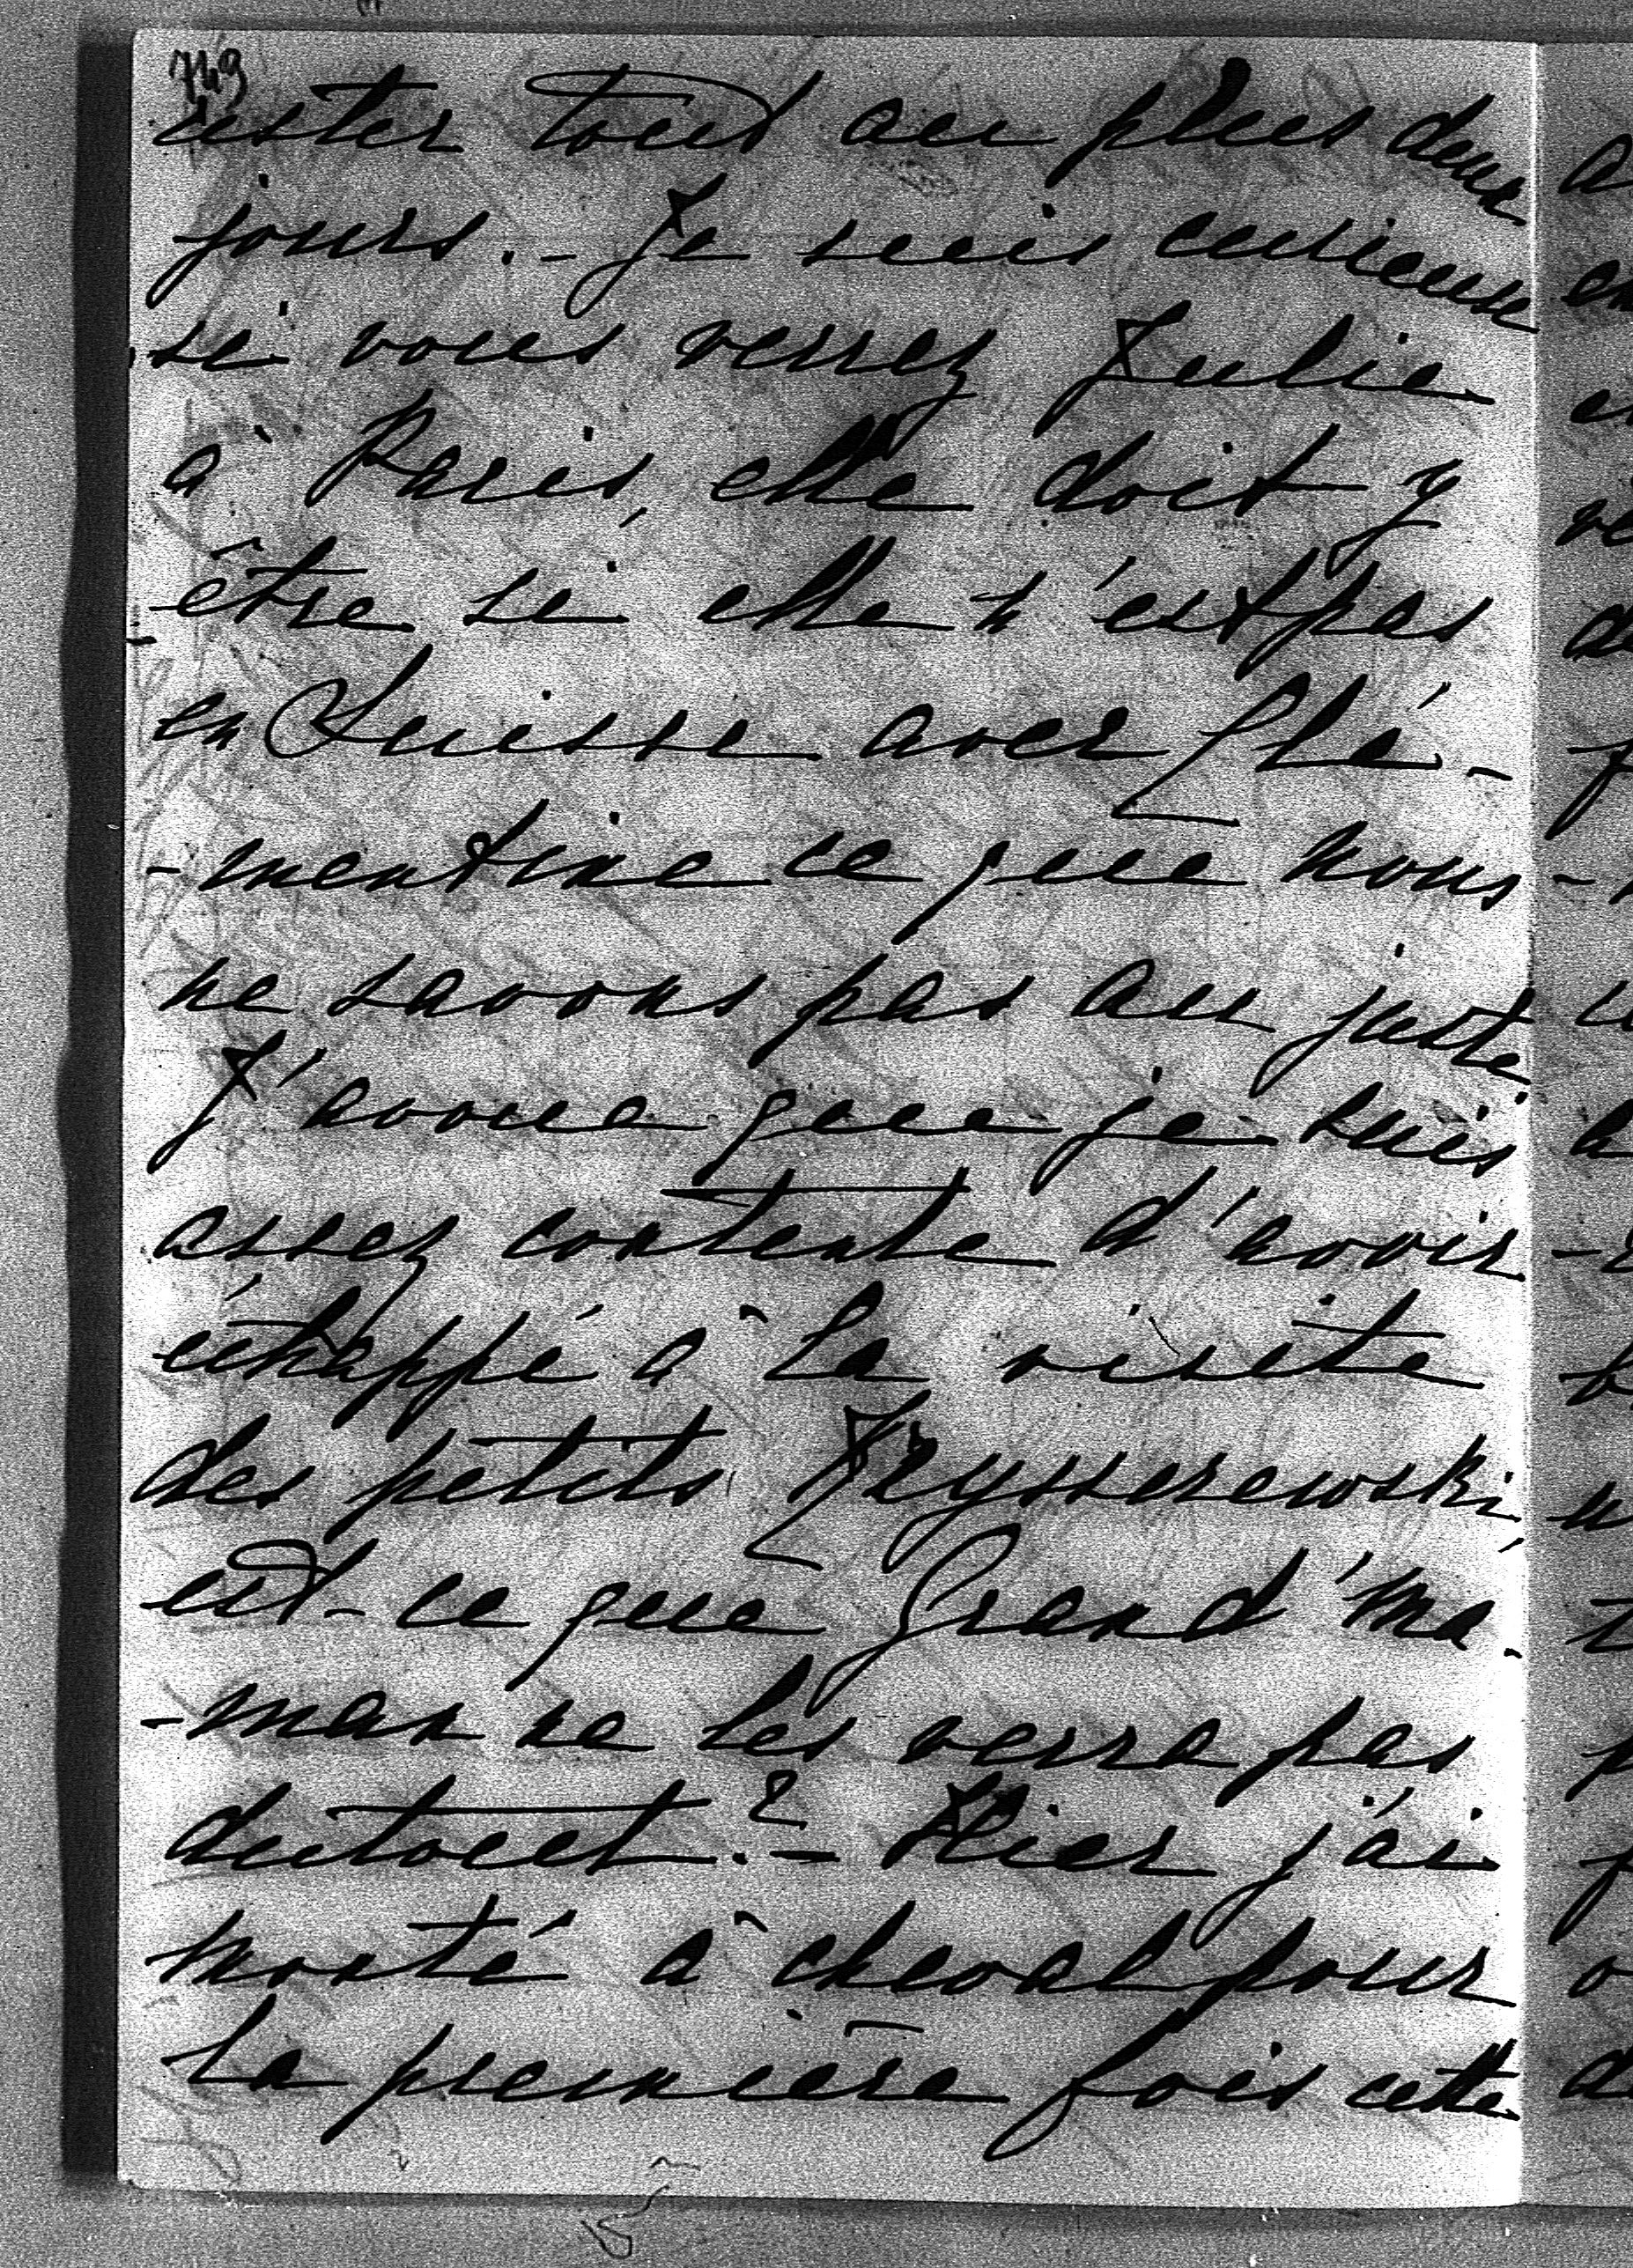 749
rester tout au plus deux
jours. - Je suis curieuse
si vous verrez Julie
à Paris, elle doit y
être si elle n'est pas
en Suisse avec Clé-
-mentine ce que nous
ne savons pas au juste
J'avoue que je suis
assez contente d'avoir
échappé à la visite
des petits
est-ce que Grand'ma-
-man ne les verra pas
dutout? - Hier j'ai
monté à cheval pour
la première fois cette